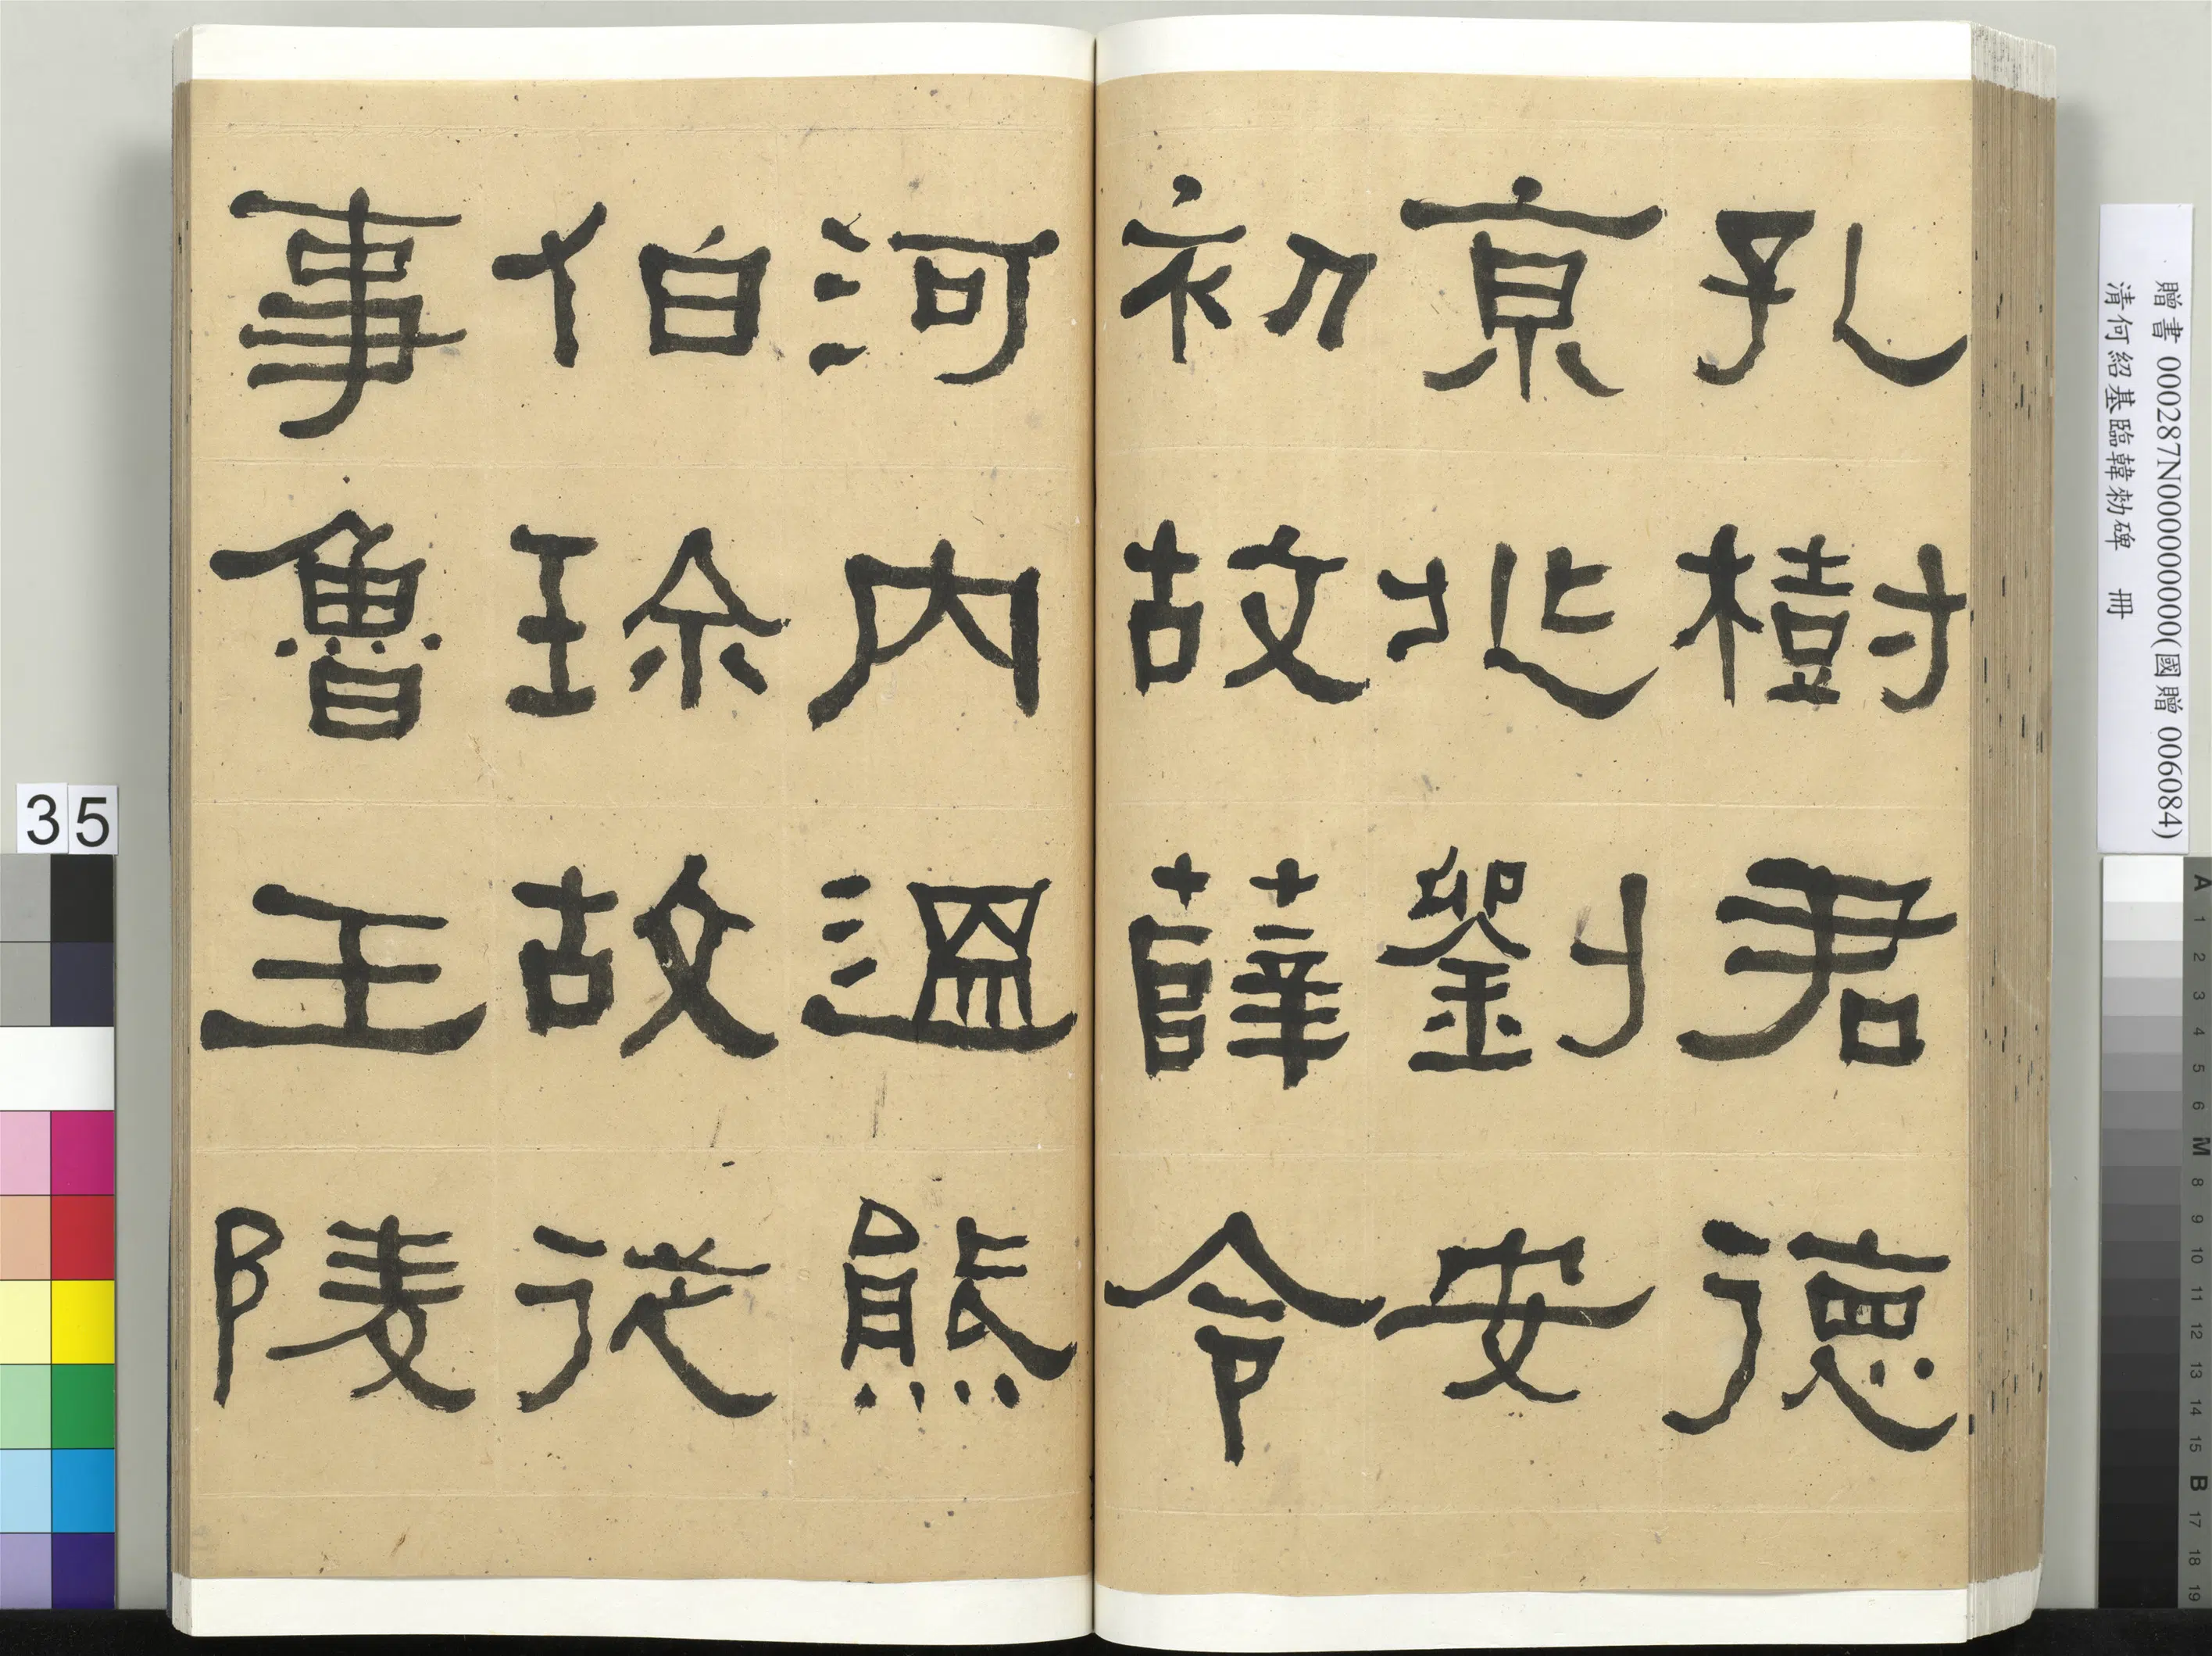 孔樹君德
京兆劉安
初故薛令
河內溫熊
伯珍故從
事魯王陵
贈書 000287N000000000(國贈 006084)
清何紹基臨韓勑碑 冊
35
A 1 2 3 4 5 6 M 8 9 10 11 12 13 14 15 B 17 18 19